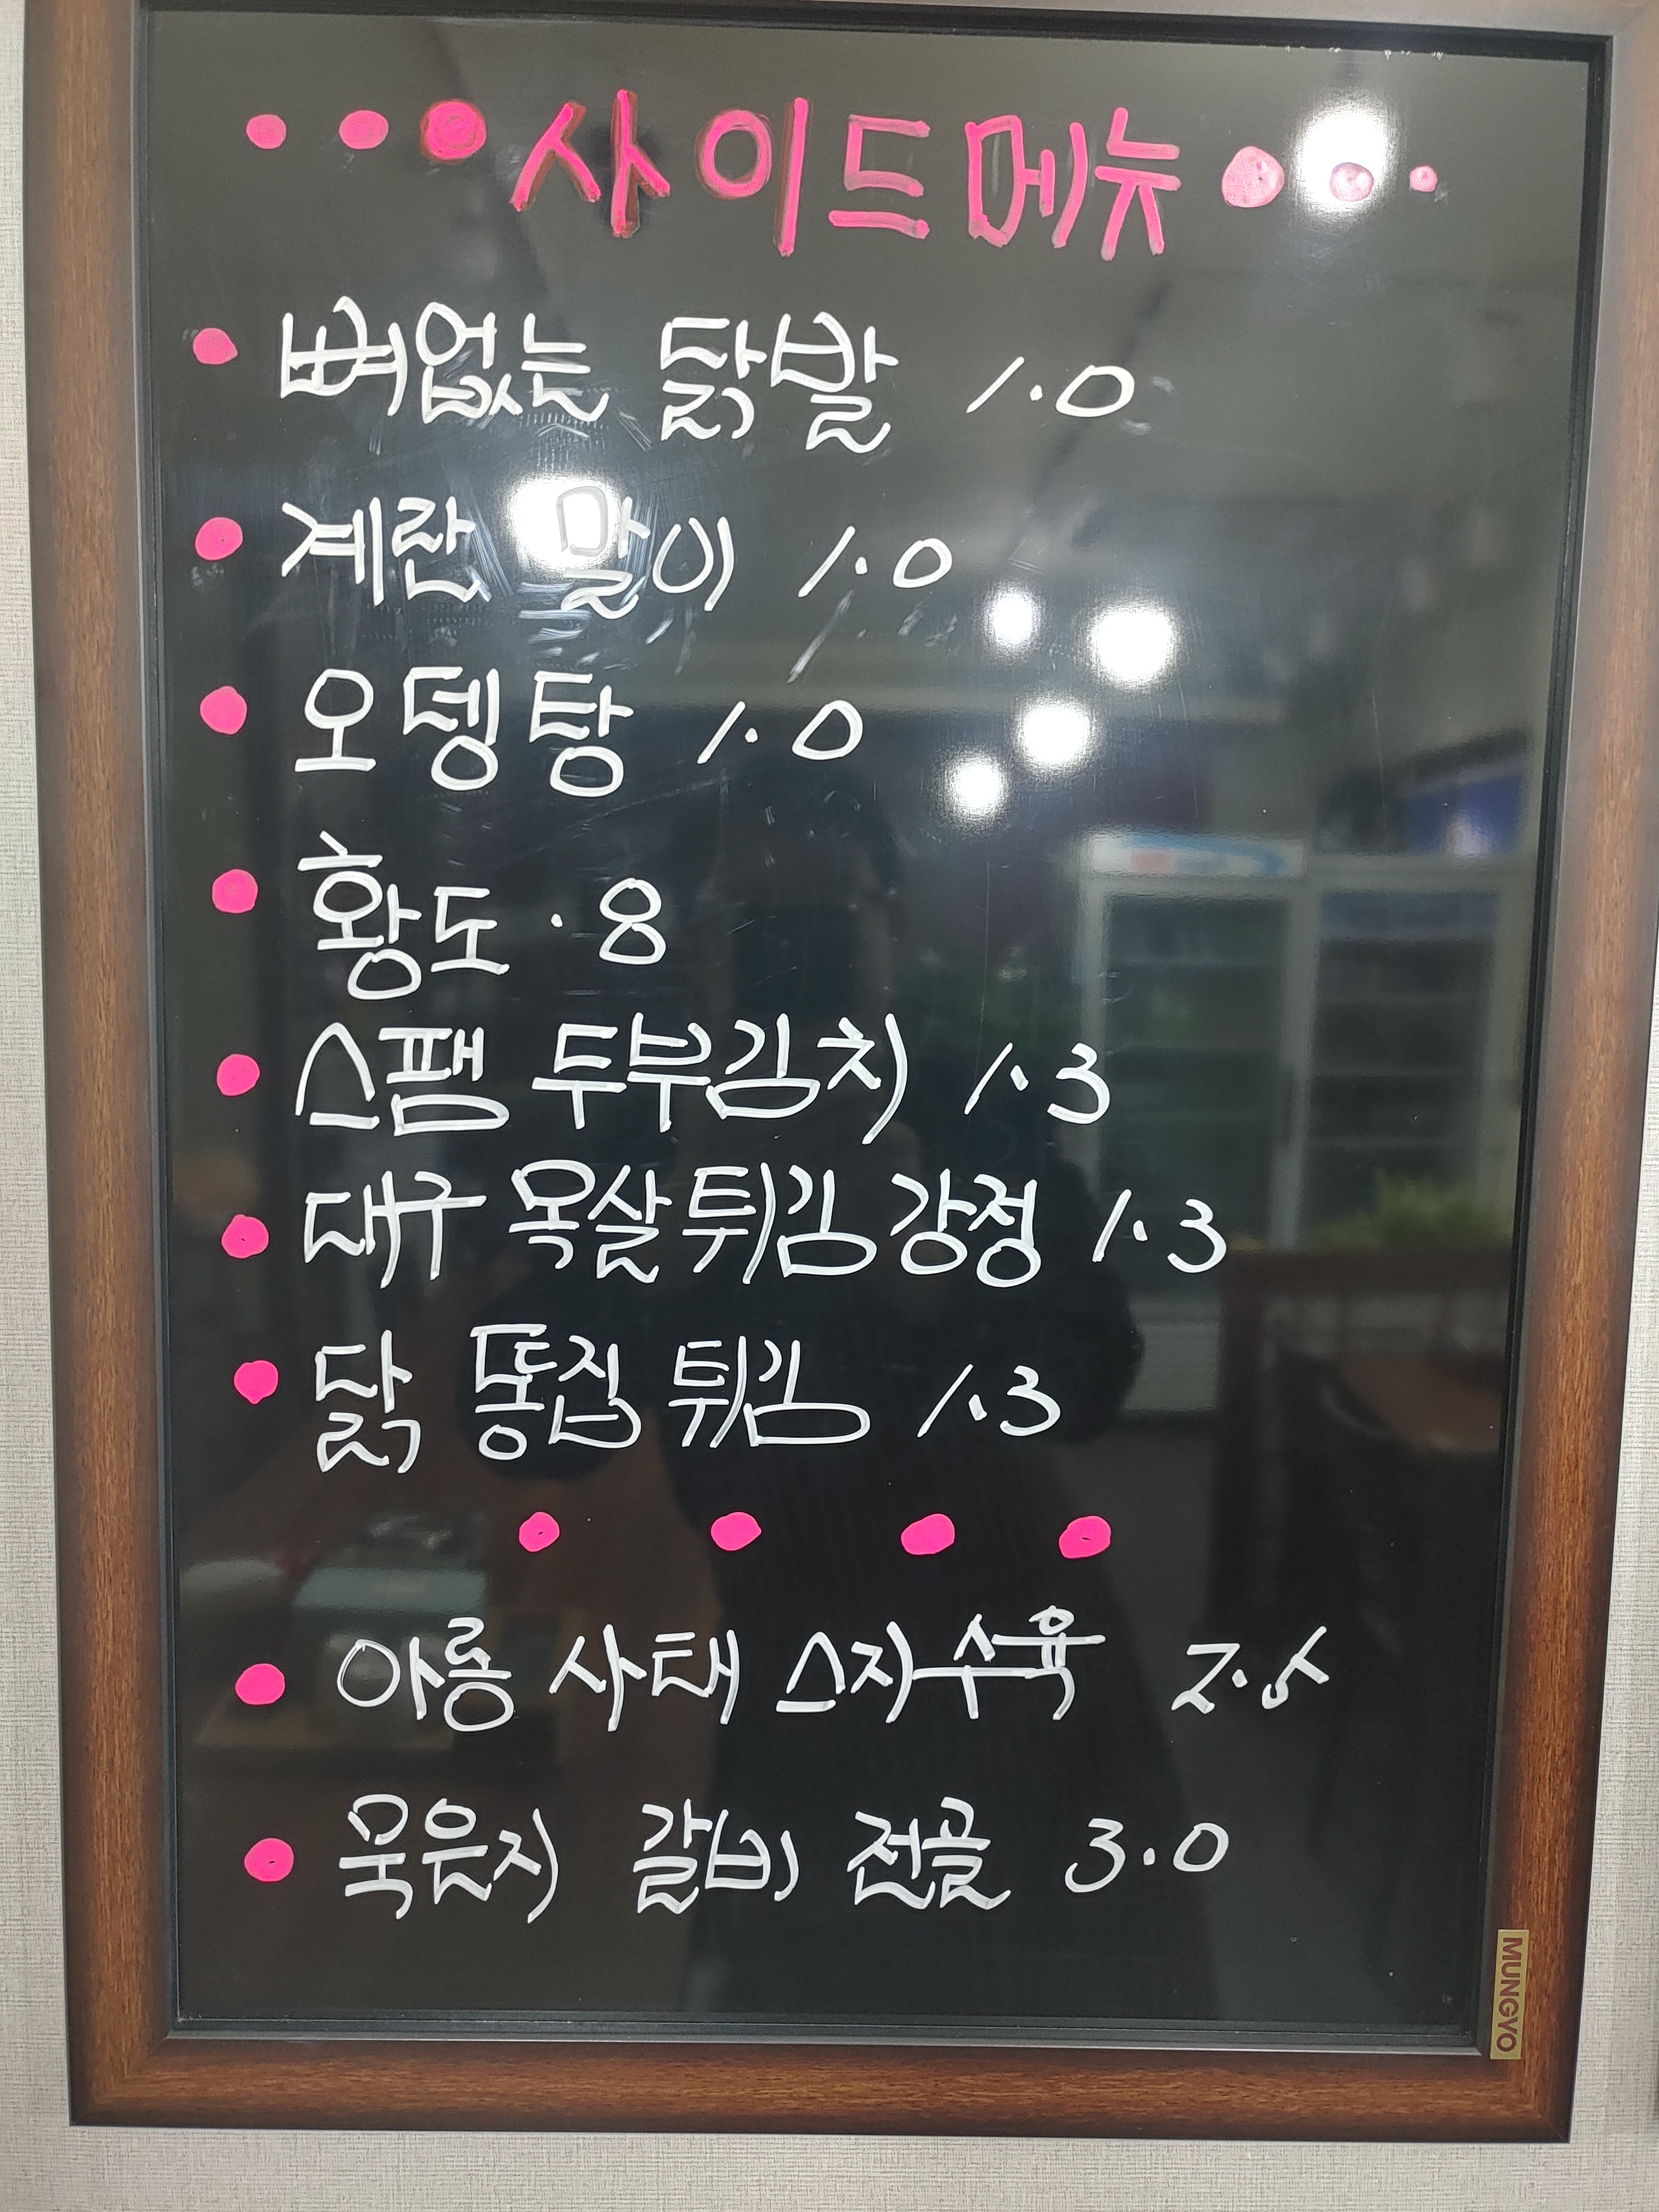 사이드메뉴
뼈없는 닭발 1.0
계란 말이 1.0
오뎅탕 1.0
황도 .8
스팸 두부김치 1.3
대구 목살튀김 강정 1.3
닭 똥집 튀김 1.3
아롱 사태 스지수육
묵은지 갈비 전골 3.0
MUNGYO